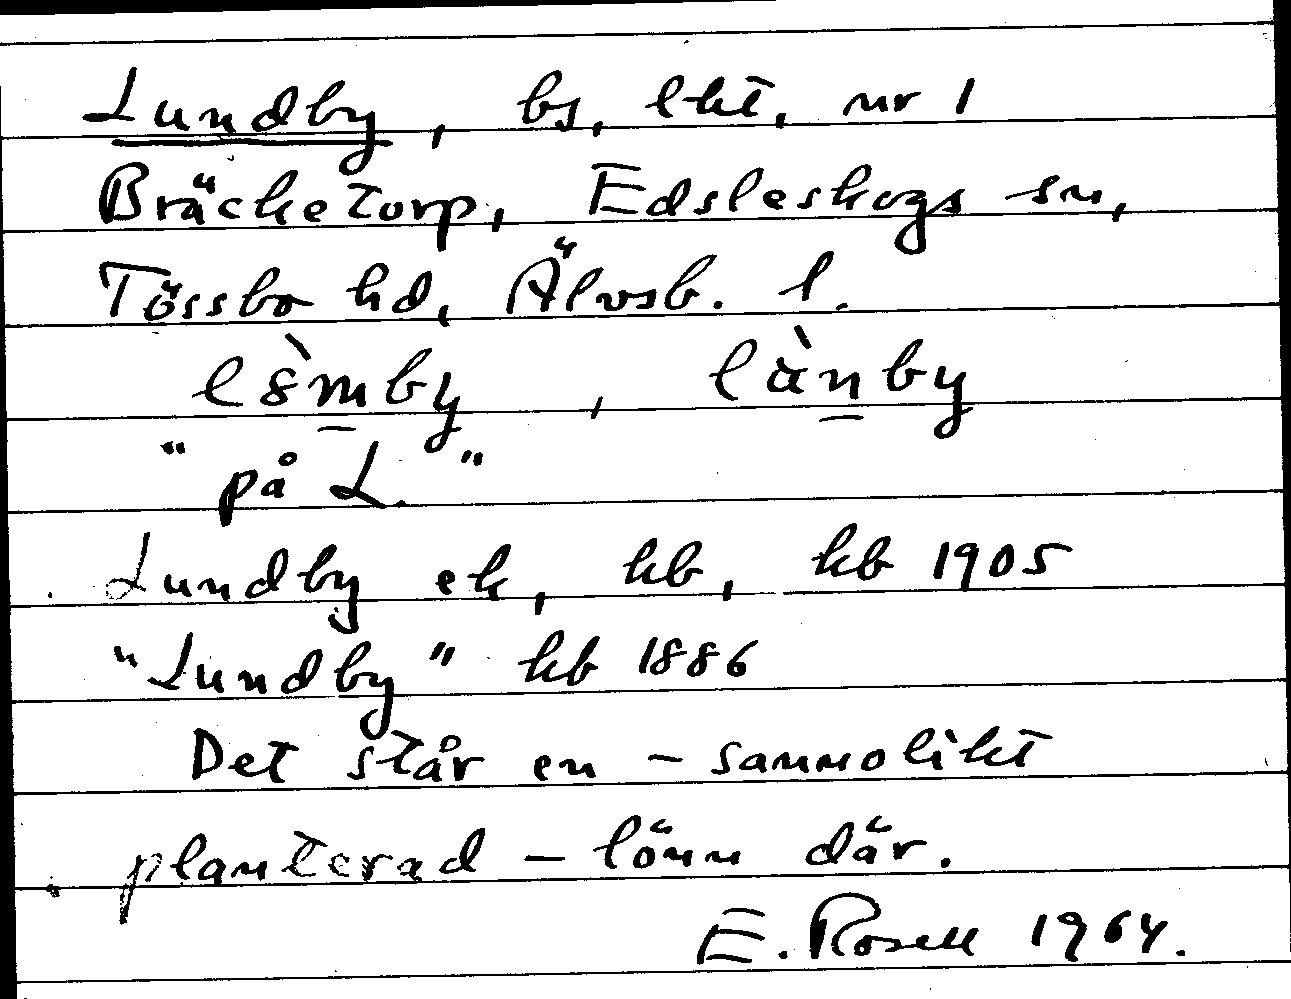 Lundby, bs, lht, nr 1
Bräcketorp, Edsleskogs sn,
Tössbo hd, Älvsb. l.
lò᪶m̲by, làn̲by
"på L."
Lundby ek, kb, kb 1905
"Lundby" kb 1886
Det står en - sannolikt
planterad - lönn där.
E. Rosell 1964.